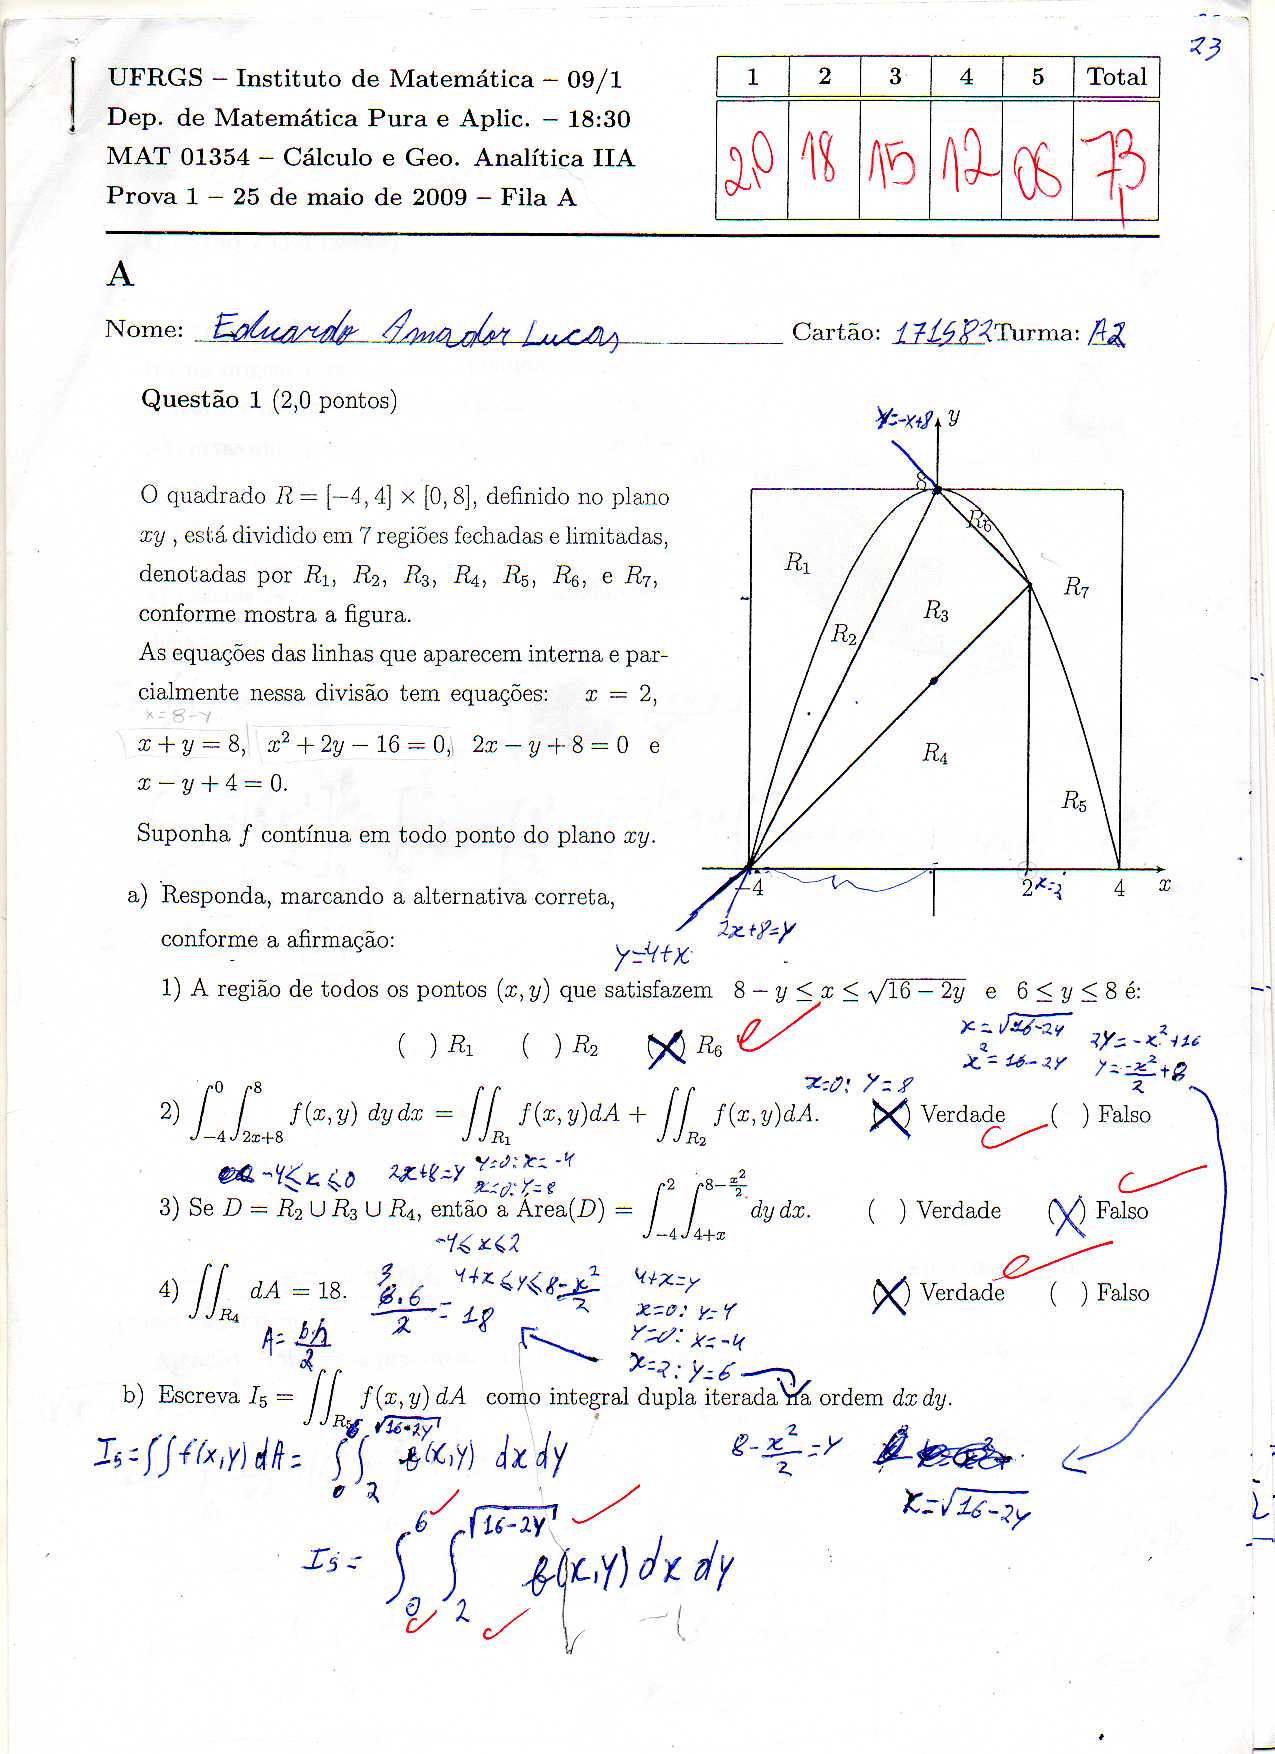 23
UFRGS – Instituto de Matemática – 09/1
Dep. de Matemática Pura e Aplic. – 18:30
MAT 01354 – Cálculo e Geo. Analítica IIA
Prova 1 – 25 de maio de 2009 – Fila A
1 2 3 4 5 Total
2,0 18 15 12 08 7,3
A
Nome: Eduardo Amador Lucas Cartão: 171582 Turma: A2
Questão 1 (2,0 pontos)
O quadrado R = [−4, 4] × [0, 8], definido no plano
xy , está dividido em 7 regiões fechadas e limitadas,
denotadas por R₁, R₂, R₃, R₄, R₅, R₆, e R₇,
conforme mostra a figura.
As equações das linhas que aparecem interna e par-
cialmente nessa divisão tem equações: x = 2,
x = 8 - y
x + y = 8, x² + 2y − 16 = 0, 2x − y + 8 = 0 e
x − y + 4 = 0.
Suponha f contínua em todo ponto do plano xy.
y=-x+8
y
8
R₆
R₁
R₇
R₃
R₂
R₄
R₅
−4 2 x=2 4 x
2x+8=y
y=4+x
a) Responda, marcando a alternativa correta,
conforme a afirmação:
1) A região de todos os pontos (x, y) que satisfazem 8 − y ≤ x ≤ √(16 − 2y) e 6 ≤ y ≤ 8 é:
( ) R₁ ( ) R₂ (X) R₆
x=√(16-2y) 2y=-x²+16
x²=16-2y y=-x²/2+8
x=0: y=8
2) ∫₋₄⁰ ∫₂ₓ₊₈⁸ f(x, y) dy dx = ∬_R₁ f(x, y)dA + ∬_R₂ f(x, y)dA. (X) Verdade ( ) Falso
-4≤x≤0 2x+8=y y=0: x=-4
x=0: y=8
3) Se D = R₂ ∪ R₃ ∪ R₄, então a Área(D) = ∫₋₄² ∫₄₊ₓ^(8−x²/2) dy dx. ( ) Verdade (X) Falso
-4≤x≤2
4) ∬_R₄ dA = 18. (X) Verdade ( ) Falso
6·6/2 = 18 4+x≤y≤8-x²/2 4+x=y
x=0: y=4
A=b·h/2 y=0: x=-4
x=2: y=6
b) Escreva I₅ = ∬_R₅ f(x, y) dA como integral dupla iterada na ordem dx dy.
I₅=∬f(x,y)dA= ∫₀⁶ ∫₂^√(16-2y) f(x,y) dx dy
8-x²/2=y
x=√(16-2y)
I₅= ∫₀⁶ ∫₂^√(16-2y) f(x,y) dx dy